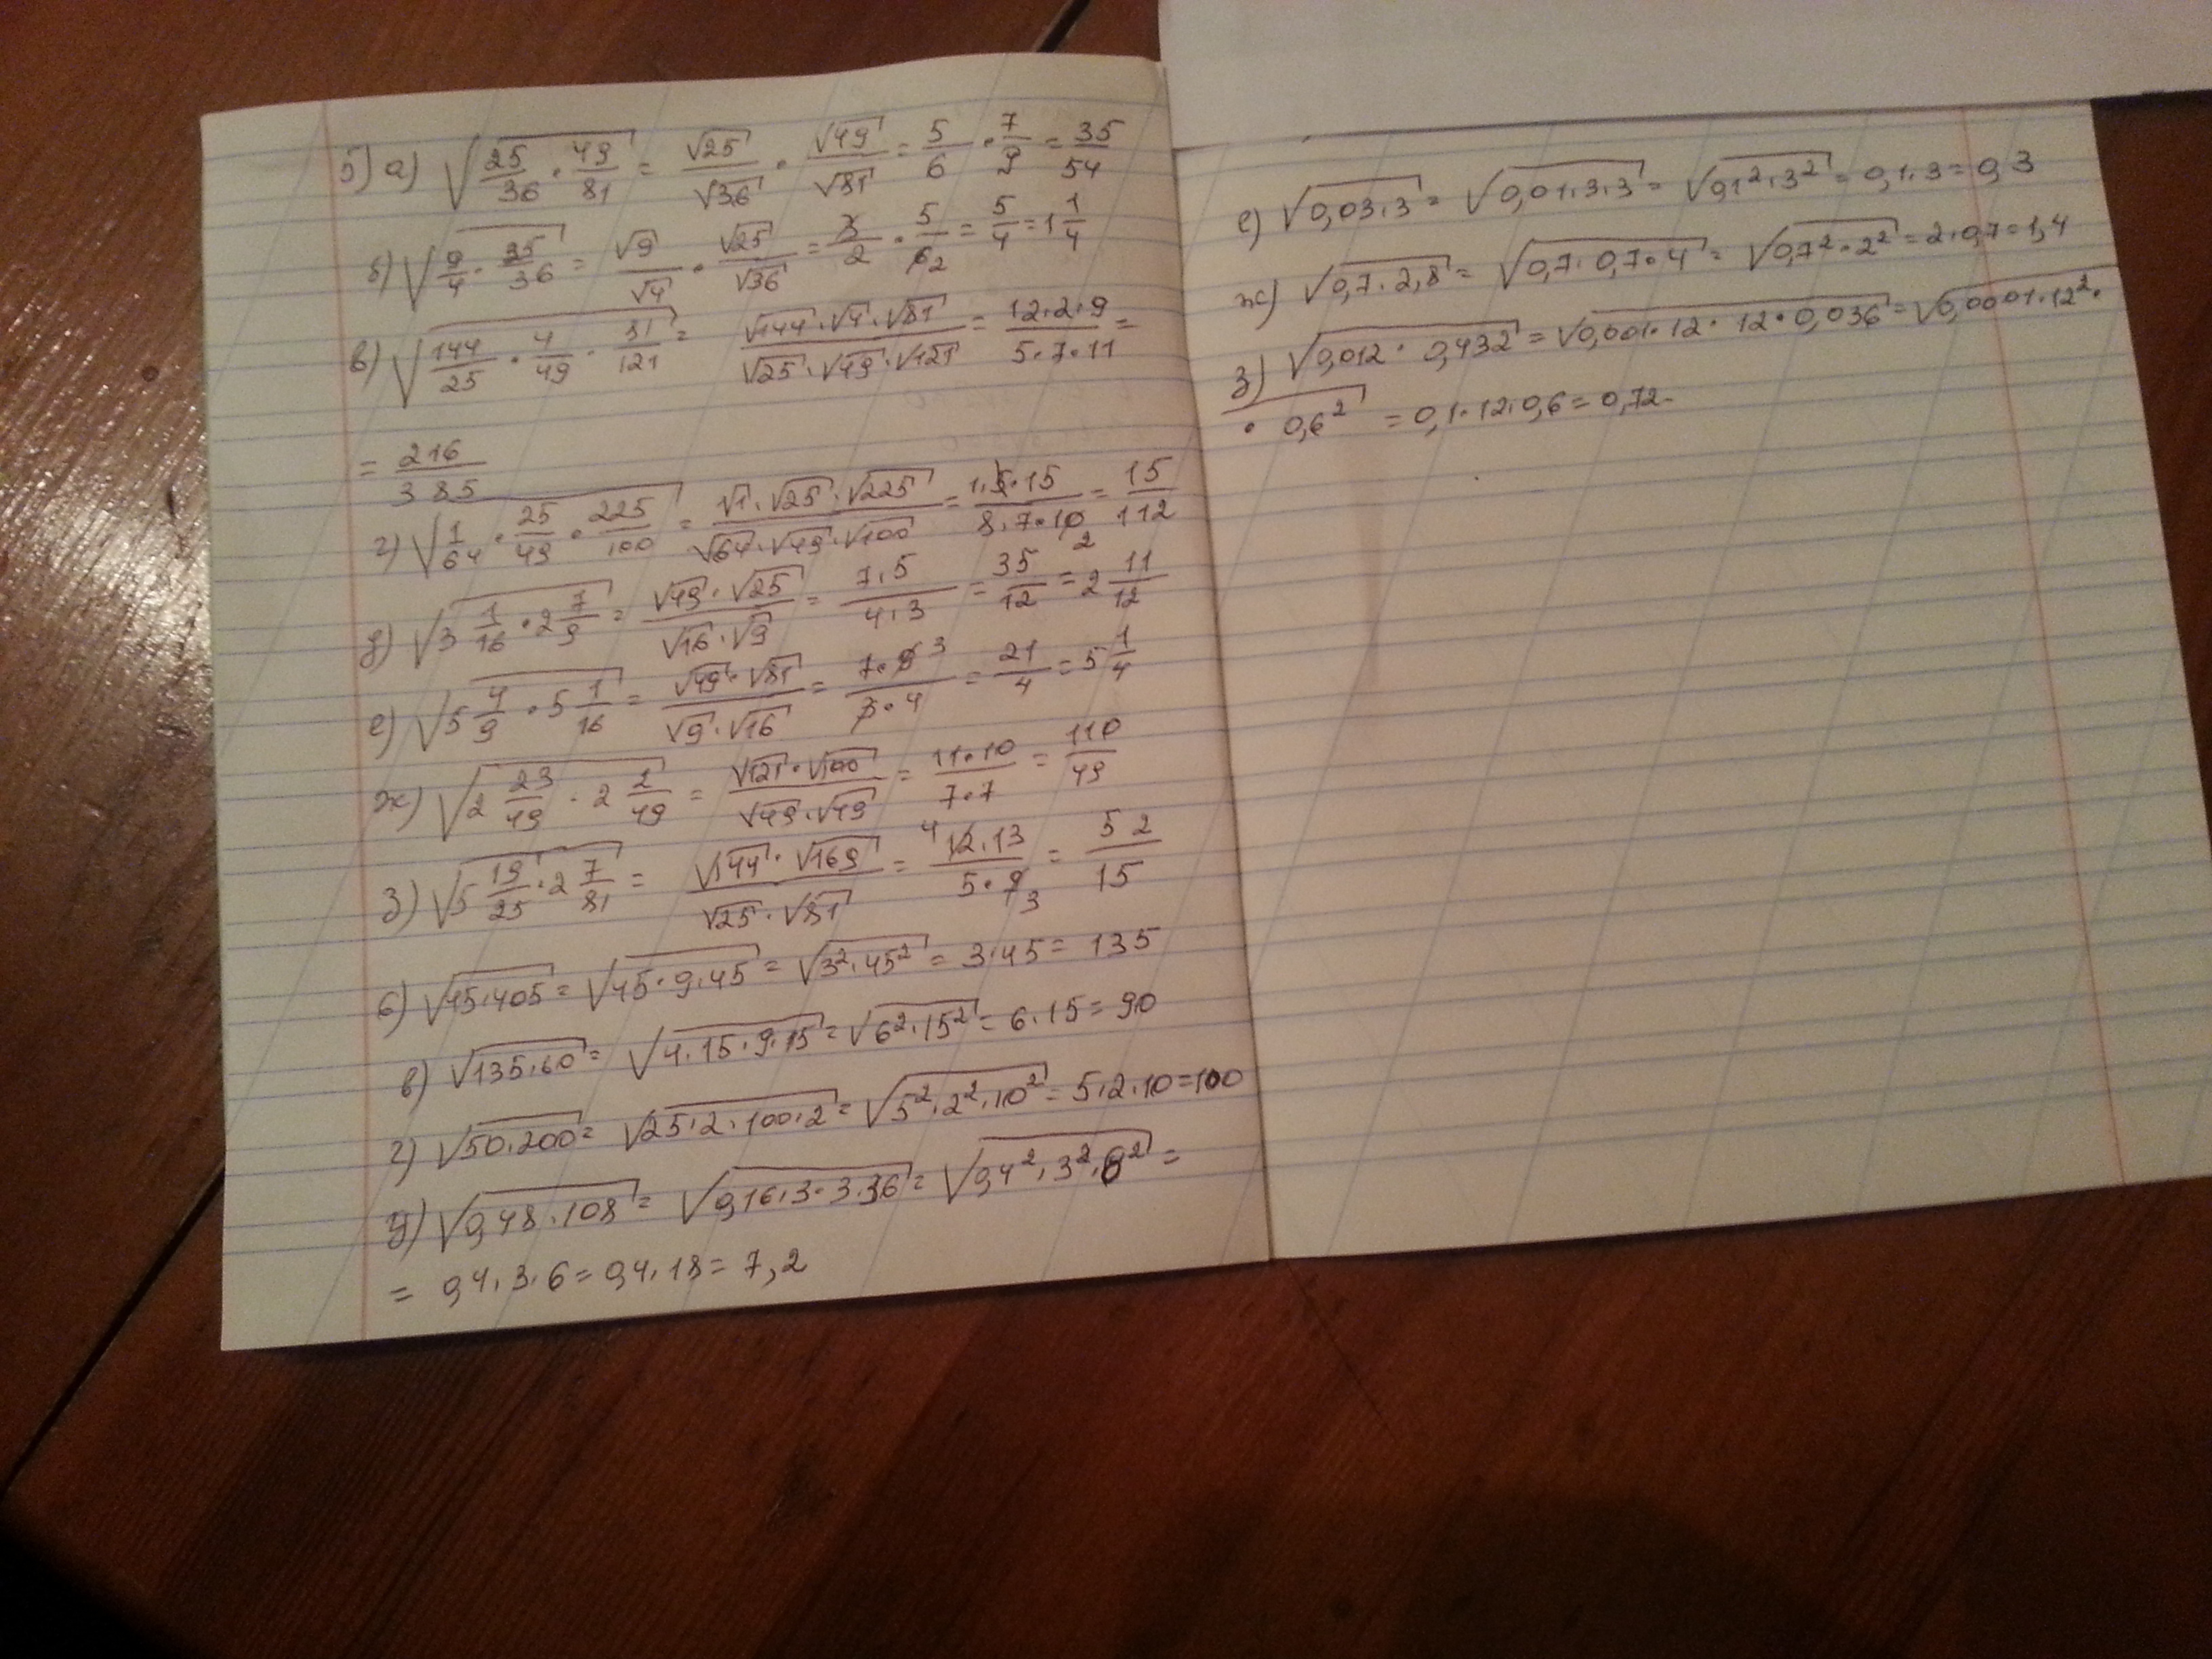 5) а) √(25/36 · 49/81) = √25/√36 · √49/√81 = 5/6 · 7/9 = 35/54
б) √(9/4 · 25/36) = √9/√4 · √25/√36 = 3/2 · 5/6 2 = 5/4 = 1 1/4
в) √(144/25 · 4/49 · 81/121) = (√144 · √4 · √81)/(√25 · √49 · √121) = (12·2·9)/(5·7·11) =
= 216/385
г) √(1/64 · 25/49 · 225/100) = (√1 · √25 · √225)/(√64 · √49 · √100) = (1·5·15)/(8·7·10 2) = 15/112
д) √(3 1/16 · 2 7/9) = (√49 · √25)/(√16 · √9) = (7·5)/(4·3) = 35/12 = 2 11/12
е) √(5 4/9 · 5 1/16) = (√49 · √81)/(√9 · √16) = (7·9 3)/(3·4) = 21/4 = 5 1/4
ж) √(2 23/49 · 2 2/49) = (√121 · √100)/(√49 · √49) = (11·10)/(7·7) = 110/49
з) √(5 19/25 · 2 7/81) = (√144 · √169)/(√25 · √81) = (4 12·13)/(5·9 3) = 52/15
б) √(45·405) = √(45·9·45) = √(3²·45²) = 3·45 = 135
в) √(135·60) = √(4·15·9·15) = √(6²·15²) = 6·15 = 90
г) √(50·200) = √(25·2·100·2) = √(5²·2²·10²) = 5·2·10 = 100
д) √(0,48·108) = √(0,16·3·3·36) = √(0,4²·3²·6²) =
= 0,4·3·6 = 0,4·18 = 7,2
е) √(0,03·3) = √(0,01·3·3) = √(0,1²·3²) = 0,1·3 = 0,3
ж) √(0,7·2,8) = √(0,7·0,7·4) = √(0,7²·2²) = 2·0,7 = 1,4
з) √(0,012·0,432) = √(0,001·12·12·0,036) = √(0,0001·12²·
· 0,6²) = 0,1·12·0,6 = 0,72